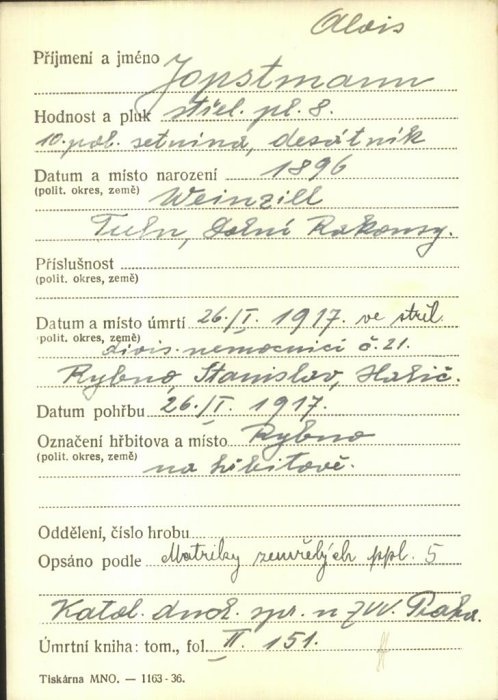 Alois
Příjmení a jméno Jopstmann
Hodnost a pluk střel. pl. 8.
10. pol. setnina, desátník
Datum a místo narození 1896
(polit. okres, země) Weinzill
Tuln, Dolní Rakousy.
Příslušnost
(polit. okres, země)
Datum a místo úmrtí 26/I. 1917. ve střel.
(polit. okres, země) divis. nemocnici č. 21.
Rybno, Stanislav, Halič.
Datum pohřbu 26/I. 1917.
Označení hřbitova a místo Rybno
(polit. okres, země) na hřbitově.
Oddělení, číslo hrobu
Opsáno podle Matriky zemřelých ppl. 5
Katol. duch. spr. n ZVV. Praha.
Úmrtní kniha: tom., fol. II. 151.
Tiskárna MNO. — 1163-36.